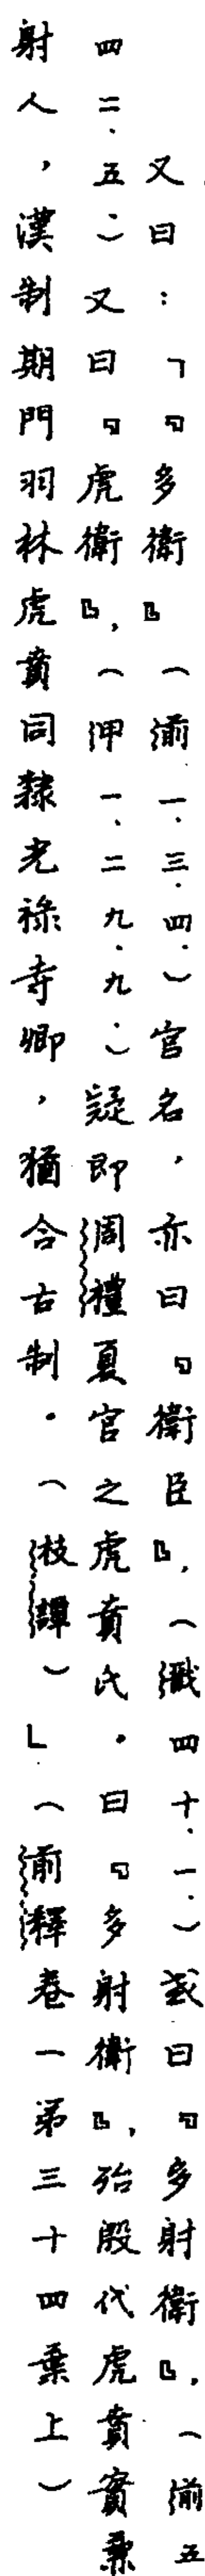 又曰：「『多衛』（湔一、三、四、）官名，亦曰『衛臣』，（瀸四十、一、）或曰『多射衛』，（湔五
四二、五、）又曰『虎衛』，（㳌一、二九、九、）疑即周禮夏官之虎賁氏。曰『多射衛』，殆殷代虎賁實兼
射人，漢制期門羽林虎賁同隸光祿寺卿，猶合古制。（枝譚）」（前釋卷一第三十四葉上）